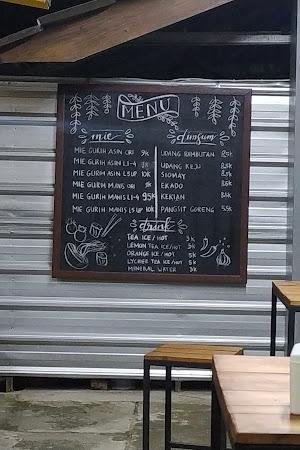 MENU
mie
MIE GURIH ASIN ORI 9K
MIE GURIH ASIN L1-4
MIE GURIH ASIN L5UP 10K
MIE GURIH MANIS ORI 9K
MIE GURIH MANIS L1-4 9.5K
MIE GURIH MANIS L5 UP 10K
dimsum
UDANG RAMBUTAN 8.5K
UDANG KEJU 8.5K
SIOMAY 8.5K
EKADO 8.5K
KEKIAN 8.5K
PANGSIT GORENG
drink
TEA ICE/HOT 3K
LEMON TEA ICE/HOT
ORANGE ICE/HOT 5K
LYCHEE TEA ICE/HOT
MINERAL WATER